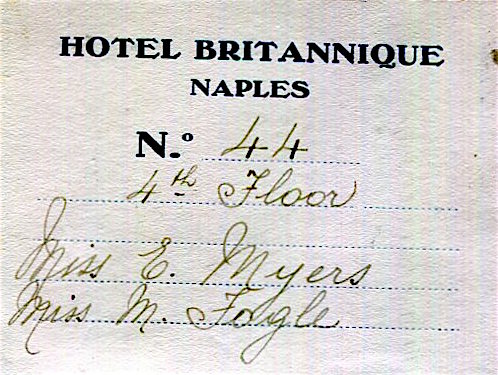 HOTEL BRITANNIQUE
NAPLES
N.º 44
4th Floor
Miss E. Myers
Miss M. Fogle